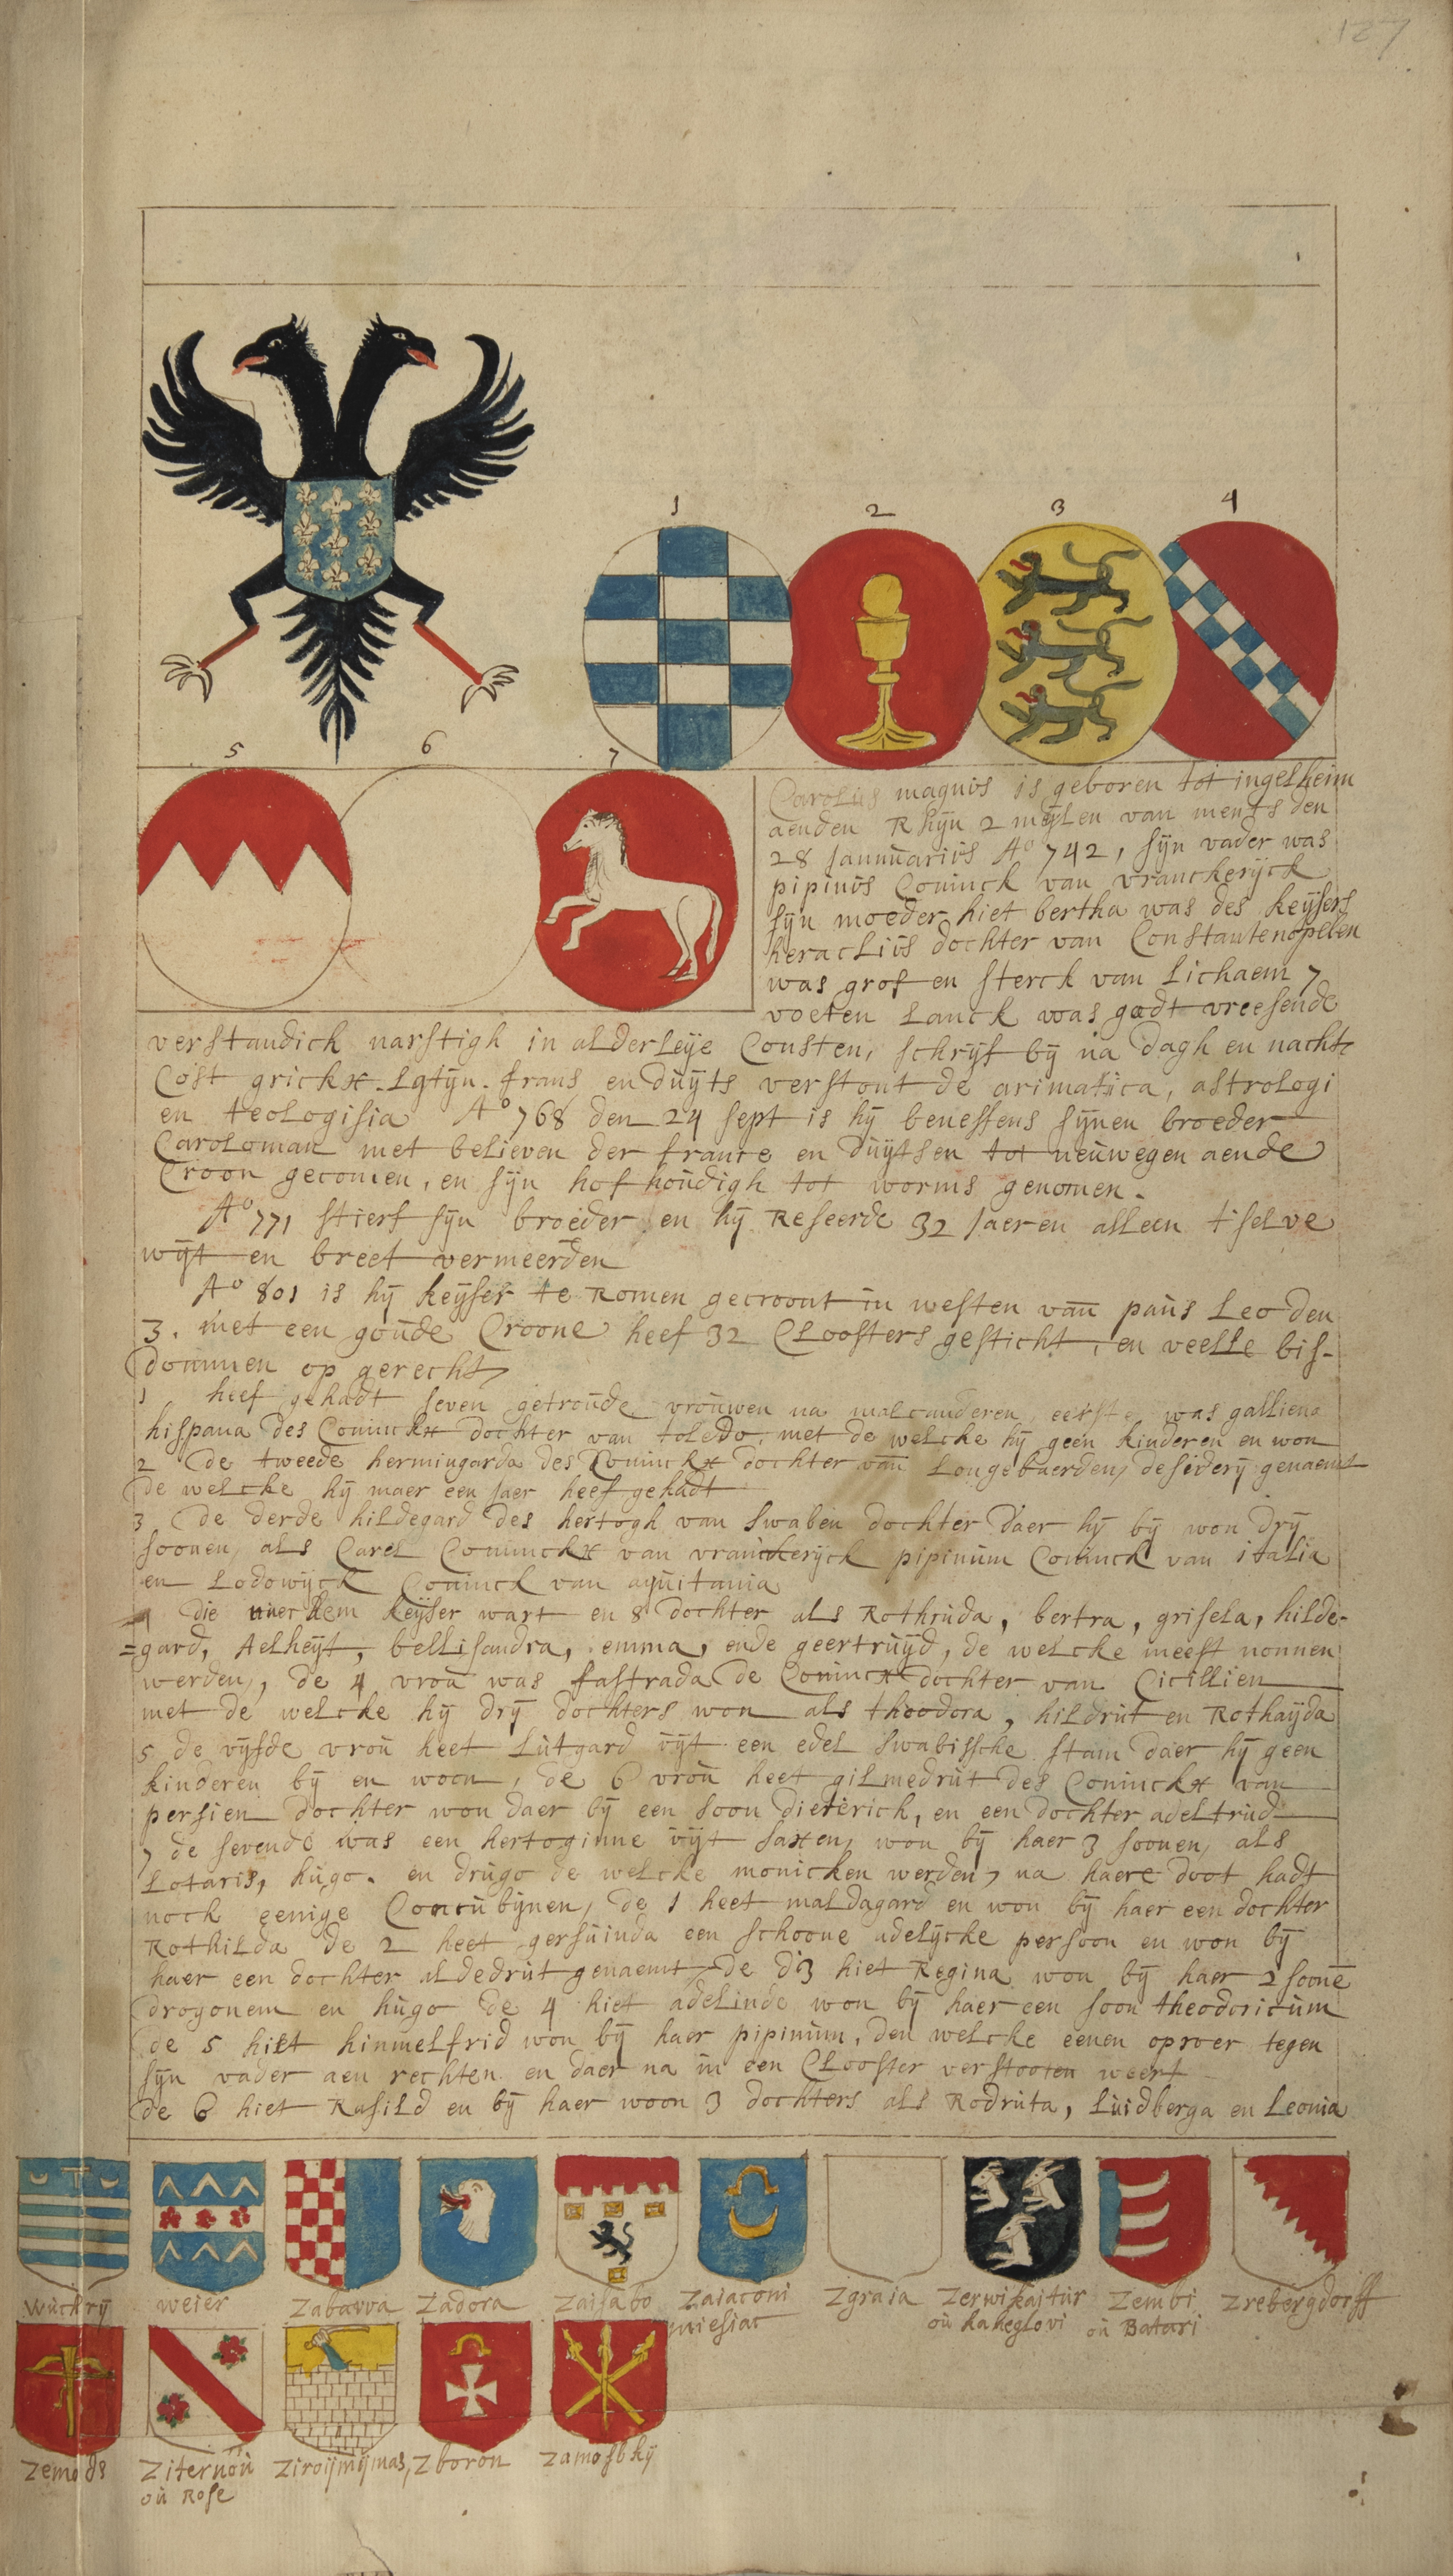 127
1 2 3 4
5 6 7
Carolus magnus is geboren tot ingelheim
aenden Rhijn 2 mijlen van ments den
28 Januuarius A° 742, sijn vader was
pipinus Coninck van vranckerijck
sijn moeder hiet bertha was des keijsers
heraclius dochter van Constantenopelen
was grof en sterck van lichaem 7
voeten lanck was godt vreesende
verstandich narstigh in alderleije Consten, schrijf bij na dagh en nacht
Cost grickx. Latijn. frans en duijts verstont de arimatica, astrologi
en teologisia A° 768 den 24 sept is hij beneffens sijnen broeder
Caroloman met believen der france en duijtsen tot neuwegen aende
Croon gecomen, en sijn hof houdigh tot worms genomen.
A° 771 stierf sijn broeder en hij Reseerde 32 Jaeren alleen t'selve
wijt en breet vermeerden
A° 801 is hij keijser te Romen gecroont in westen van paus Leo den
3. met een goude Croone heef 32 Cloosters gesticht, en veelle bis-
dommen op gerecht
1 heef gehadt seven getroude vrouwen na malcanderen eerste was galliena
hispana des Coninckx dochter van toledo, met de welcke hij geen kinderen en won
2 de tweede hermingarda des Coninckx dochter van Longebaerden, desiderij genaemt
de welcke hij maer een jaer heef gehadt
3 de derde hildegard des hertogh van Swaben dochter daer hij bij won drij
soonen, als Carel Coninckx van vranckerijck pipinum Coninck van italia
en Lodowijck Coninck van aquitania
die naer hem keijser wart en 8 dochter als Rothruda, bertra, grisela, hilde-
=gard, Aelheijt, bellisandra, emma, ende geertruijd, de welcke meest nonnen
werden, de 4 vrou was fastrada de Coninckx dochter van Cicillien
met de welcke hij drij dochters won als theodora, hildrut en Rothaijda
5 de vijfde vrou heet Lutgard uijt een edel swabissche stam daer hij geen
kinderen bij en woon, de 6 vrou heet gilmedrut des Coninckx van
persien dochter won daer bij een soon dieterick, en een dochter adeltrud
7 de sevende was een hertoginne uijt saxen, won bij haer 3 soonen, als
Lotaris, hugo. en drugo de welcke monicken werden, na haere doot hadt
noch eenige Concubijnen, de 1 heet maldagard en won bij haer een dochter
Rothilda de 2 heet gersuinda een schoone adelijcke persoon en won bij
haer een dochter aldedrut genaemt, de di3 hiet Regina won bij haer 2 soone
drogonem en hugo de 4 hiet adelinde won bij haer een soon theodoricum
de 5 hiet himmelfrid won bij haer pipinum, den welcke eenen oproer tegen
sijn vader aen rechten en daer na in een Clooster verstooten weert
de 6 hiet Rasild en bij haer woon 3 dochters als Rodruta, luidberga en Leonia
wuchrij weier Zabawa Zadora Zaisabo Zaiaconi Zgraia Zerwikaitur Zembi Zrebergdorff
miesiac ou kakeglovi ou Batari
Zemods Ziternou Ziroijmijmas, Zboron Zamosbkij
ou Rose